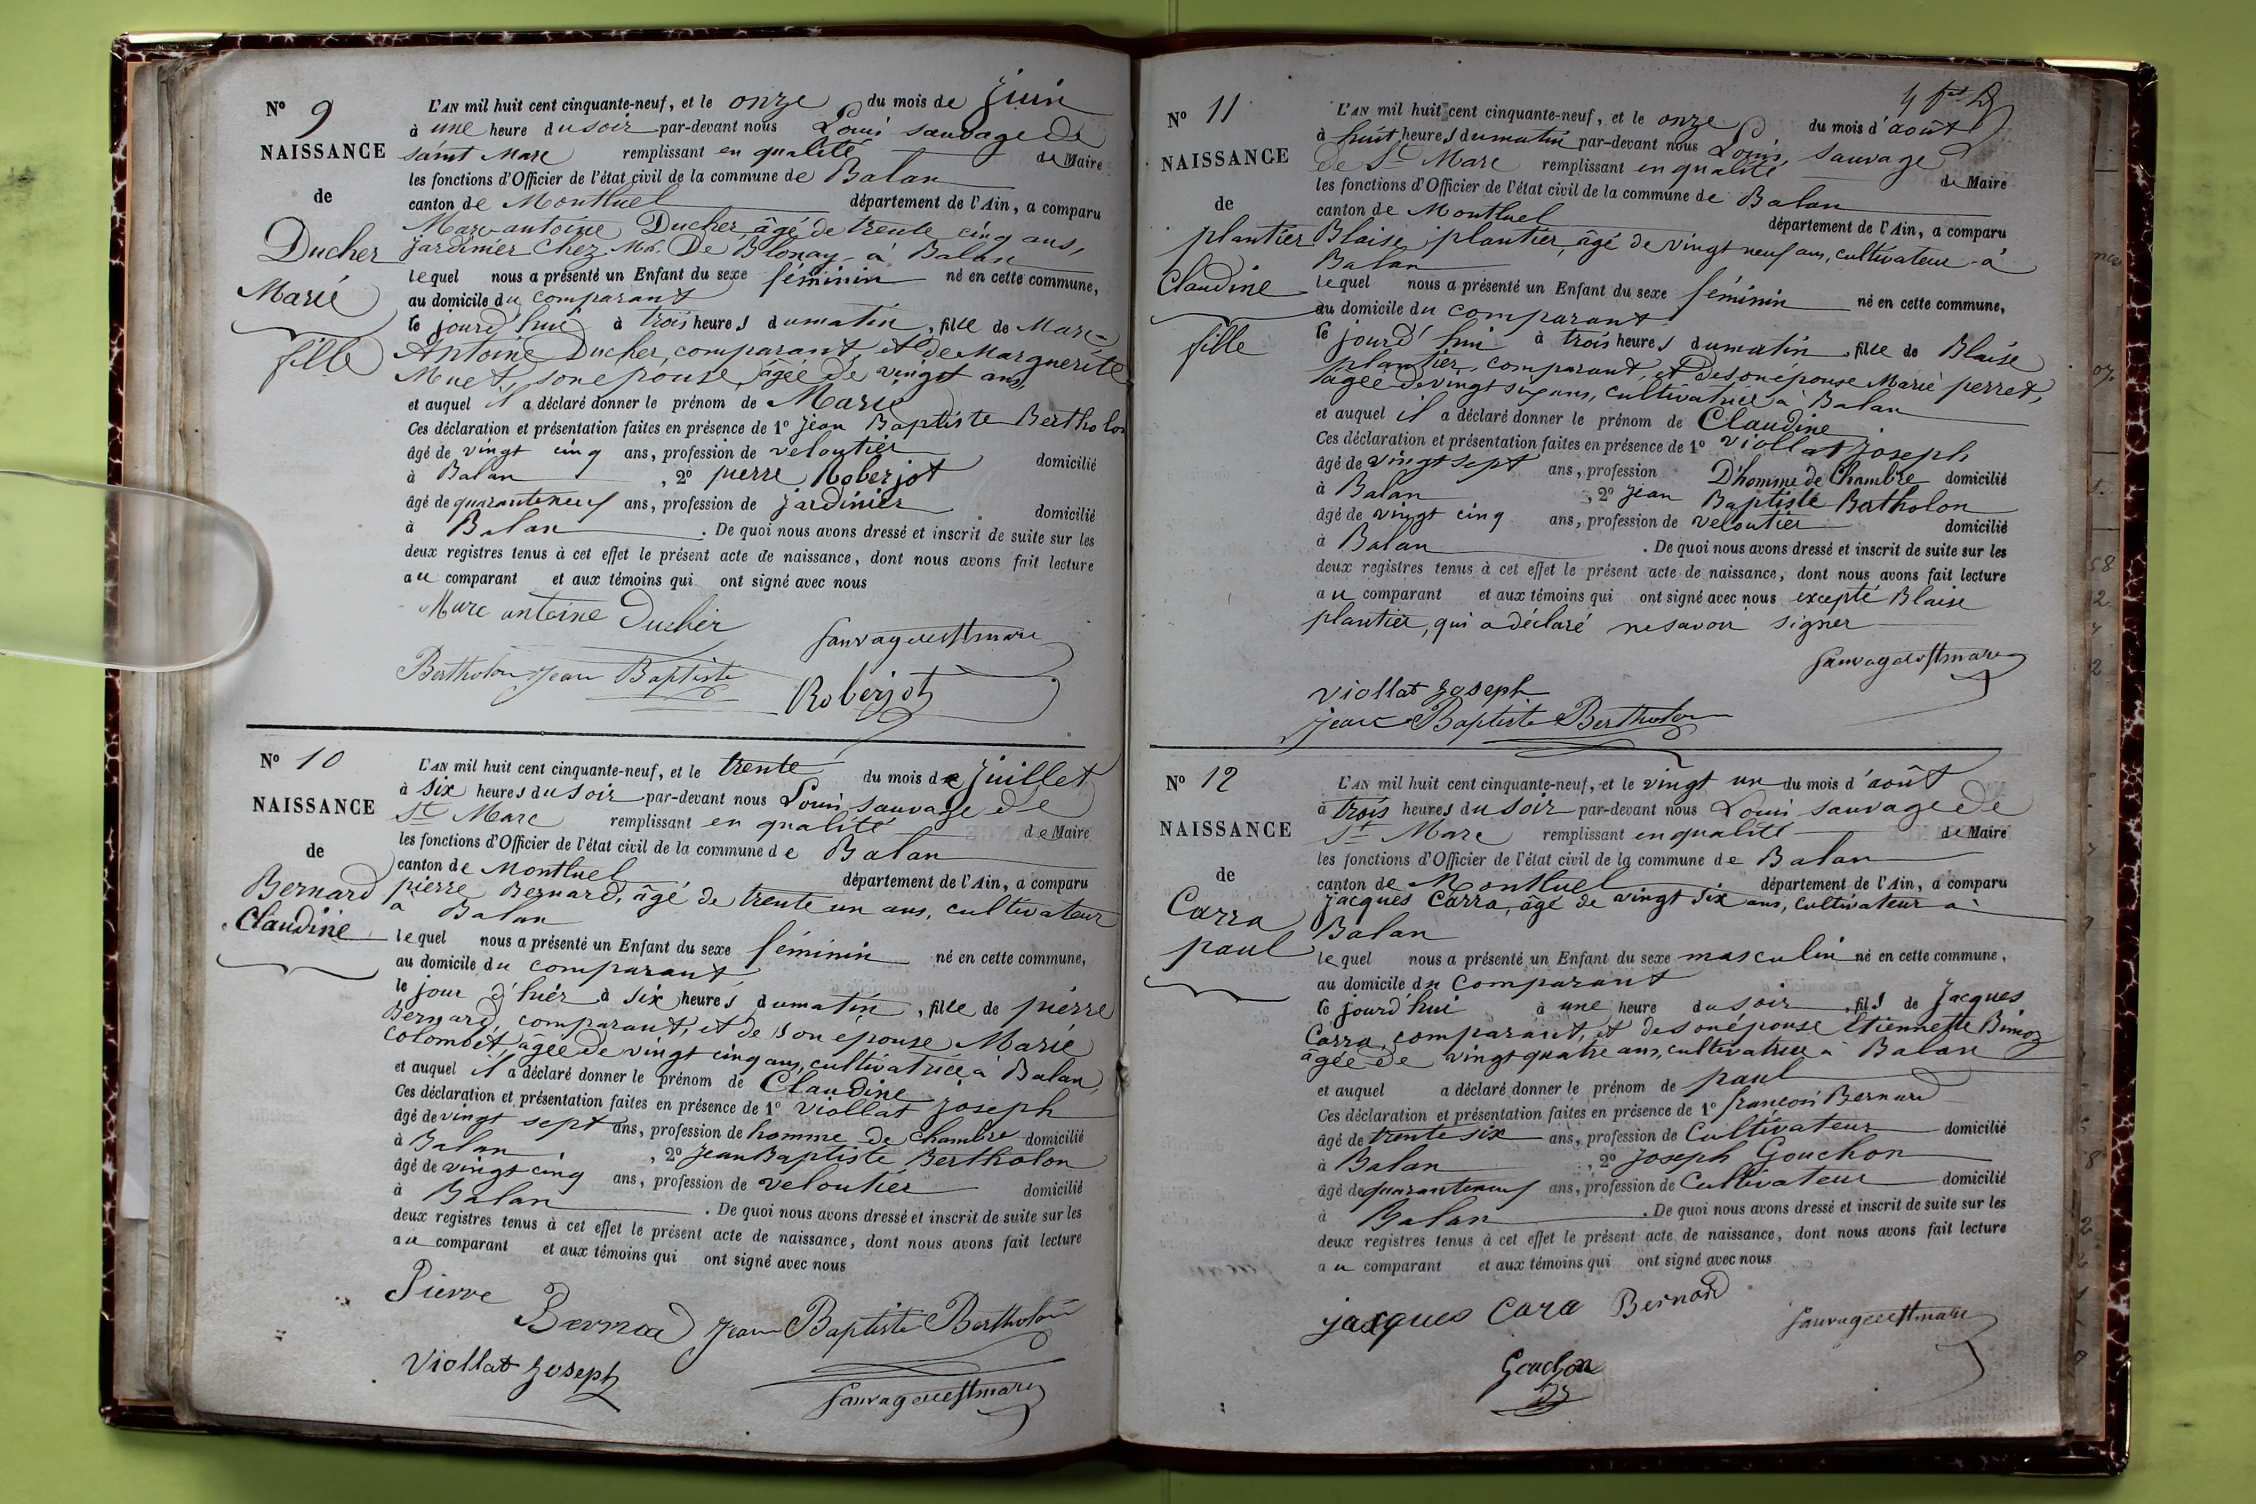 N° 9
NAISSANCE
de
Ducher
Marie
fille
L'AN mil huit cent cinquante-neuf, et le onze du mois de juin
à une heure du soir par-devant nous Louis sauvage de
saint Marc remplissant en qualité de Maire
les fonctions d'Officier de l'état civil de la commune de Balan
canton de Montluel département de l'Ain, a comparu
Marc-antoine Ducher, âgé de trente cinq ans,
jardinier chez Mr. De Blonay à Balan
lequel nous a présenté un Enfant du sexe féminin né en cette commune,
au domicile du comparant
le jourd'hui à trois heures du matin, fille de Marc-
Antoine Ducher, comparant, et de Marguerite
Muet, son epouse, âgée de vingt ans,
et auquel il a déclaré donner le prénom de Marie
Ces déclaration et présentation faites en présence de 1° jean Baptiste Bertholon
âgé de vingt cinq ans, profession de veloutier domicilié
à Balan, 2° pierre Roberjot
âgé de quaranteneuf ans, profession de jardinier domicilié
à Balan. De quoi nous avons dressé et inscrit de suite sur les
deux registres tenus à cet effet le présent acte de naissance, dont nous avons fait lecture
au comparant et aux témoins qui ont signé avec nous
Marc antoine Ducher
Sauvagedestmarc
Bertholon jean Baptiste
Roberjot
N° 10
NAISSANCE
de
Bernard
Claudine
L'AN mil huit cent cinquante-neuf, et le trente du mois de juillet
à six heures du soir par-devant nous Louis sauvage de
St Marc remplissant en qualité de Maire
les fonctions d'Officier de l'état civil de la commune de Balan
canton de Montluel département de l'Ain, a comparu
pierre Bernard, âgé de trente un ans, cultivateur
à Balan
lequel nous a présenté un Enfant du sexe féminin né en cette commune,
au domicile du comparant
le jour d'hier à six heures du matin, fille de pierre
Bernard, comparant, et de son epouse Marie
Colombet, âgée de vingt cinq ans, cultivatrice à Balan,
et auquel il a déclaré donner le prénom de Claudine
Ces déclaration et présentation faites en présence de 1° Viollat joseph
âgé de vingt sept ans, profession de homme de chambre domicilié
à Balan, 2° jean Baptiste Bertholon
âgé de vingt cinq ans, profession de veloutier domicilié
à Balan. De quoi nous avons dressé et inscrit de suite sur les
deux registres tenus à cet effet le présent acte de naissance, dont nous avons fait lecture
au comparant et aux témoins qui ont signé avec nous
Pierre
Bernard jean Baptiste Bertholon
Viollat joseph
Sauvagedestmarc
N° 11
NAISSANCE
de
plantier
Claudine
fille
L'AN mil huit cent cinquante-neuf, et le onze du mois d'août
à huit heures du matin par-devant nous Louis sauvage
de St Marc remplissant en qualité de Maire
les fonctions d'Officier de l'état civil de la commune de Balan
canton de Montluel département de l'Ain, a comparu
Blaise plantier, âgé de vingt neuf ans, cultivateur à
Balan
lequel nous a présenté un Enfant du sexe féminin né en cette commune,
au domicile du comparant
le jourd'hui à trois heures du matin, fille de Blaise
plantier, comparant, et de son épouse Marie perret,
âgée de vingt six ans, cultivatrice à Balan
et auquel il a déclaré donner le prénom de Claudine
Ces déclaration et présentation faites en présence de 1° Viollat joseph,
âgé de vingt sept ans, profession D'homme de Chambre domicilié
à Balan, 2° jean Baptiste Bertholon
âgé de vingt cinq ans, profession de veloutier domicilié
à Balan. De quoi nous avons dressé et inscrit de suite sur les
deux registres tenus à cet effet le présent acte de naissance, dont nous avons fait lecture
au comparant et aux témoins qui ont signé avec nous excepté Blaise
plantier, qui a déclaré ne savoir signer
Sauvagedestmarc
Viollat joseph
jean Baptiste Bertholon
N° 12
NAISSANCE
de
Carra
paul
L'AN mil huit cent cinquante-neuf, et le vingt un du mois d'août
à trois heures du soir par-devant nous Louis sauvage de
St Marc remplissant en qualité de Maire
les fonctions d'Officier de l'état civil de la commune de Balan
canton de Montluel département de l'Ain, a comparu
jacques Carra, âgé de vingt six ans, cultivateur à
Balan
lequel nous a présenté un Enfant du sexe masculin né en cette commune,
au domicile du comparant
le jourd'hui à une heure du soir, fils de jacques
Carra, comparant, et de son épouse Etiennette Binoz
âgée de vingt quatre ans, cultivatrice à Balan
et auquel a déclaré donner le prénom de paul
Ces déclaration et présentation faites en présence de 1° françois Bernard
âgé de trente six ans, profession de Cultivateur domicilié
à Balan, 2° joseph Gouchon
âgé de quaranteneuf ans, profession de Cultivateur domicilié
à Balan. De quoi nous avons dressé et inscrit de suite sur les
deux registres tenus à cet effet le présent acte de naissance, dont nous avons fait lecture
au comparant et aux témoins qui ont signé avec nous
jacques Cara Bernard
Sauvagedestmarc
Gouchon